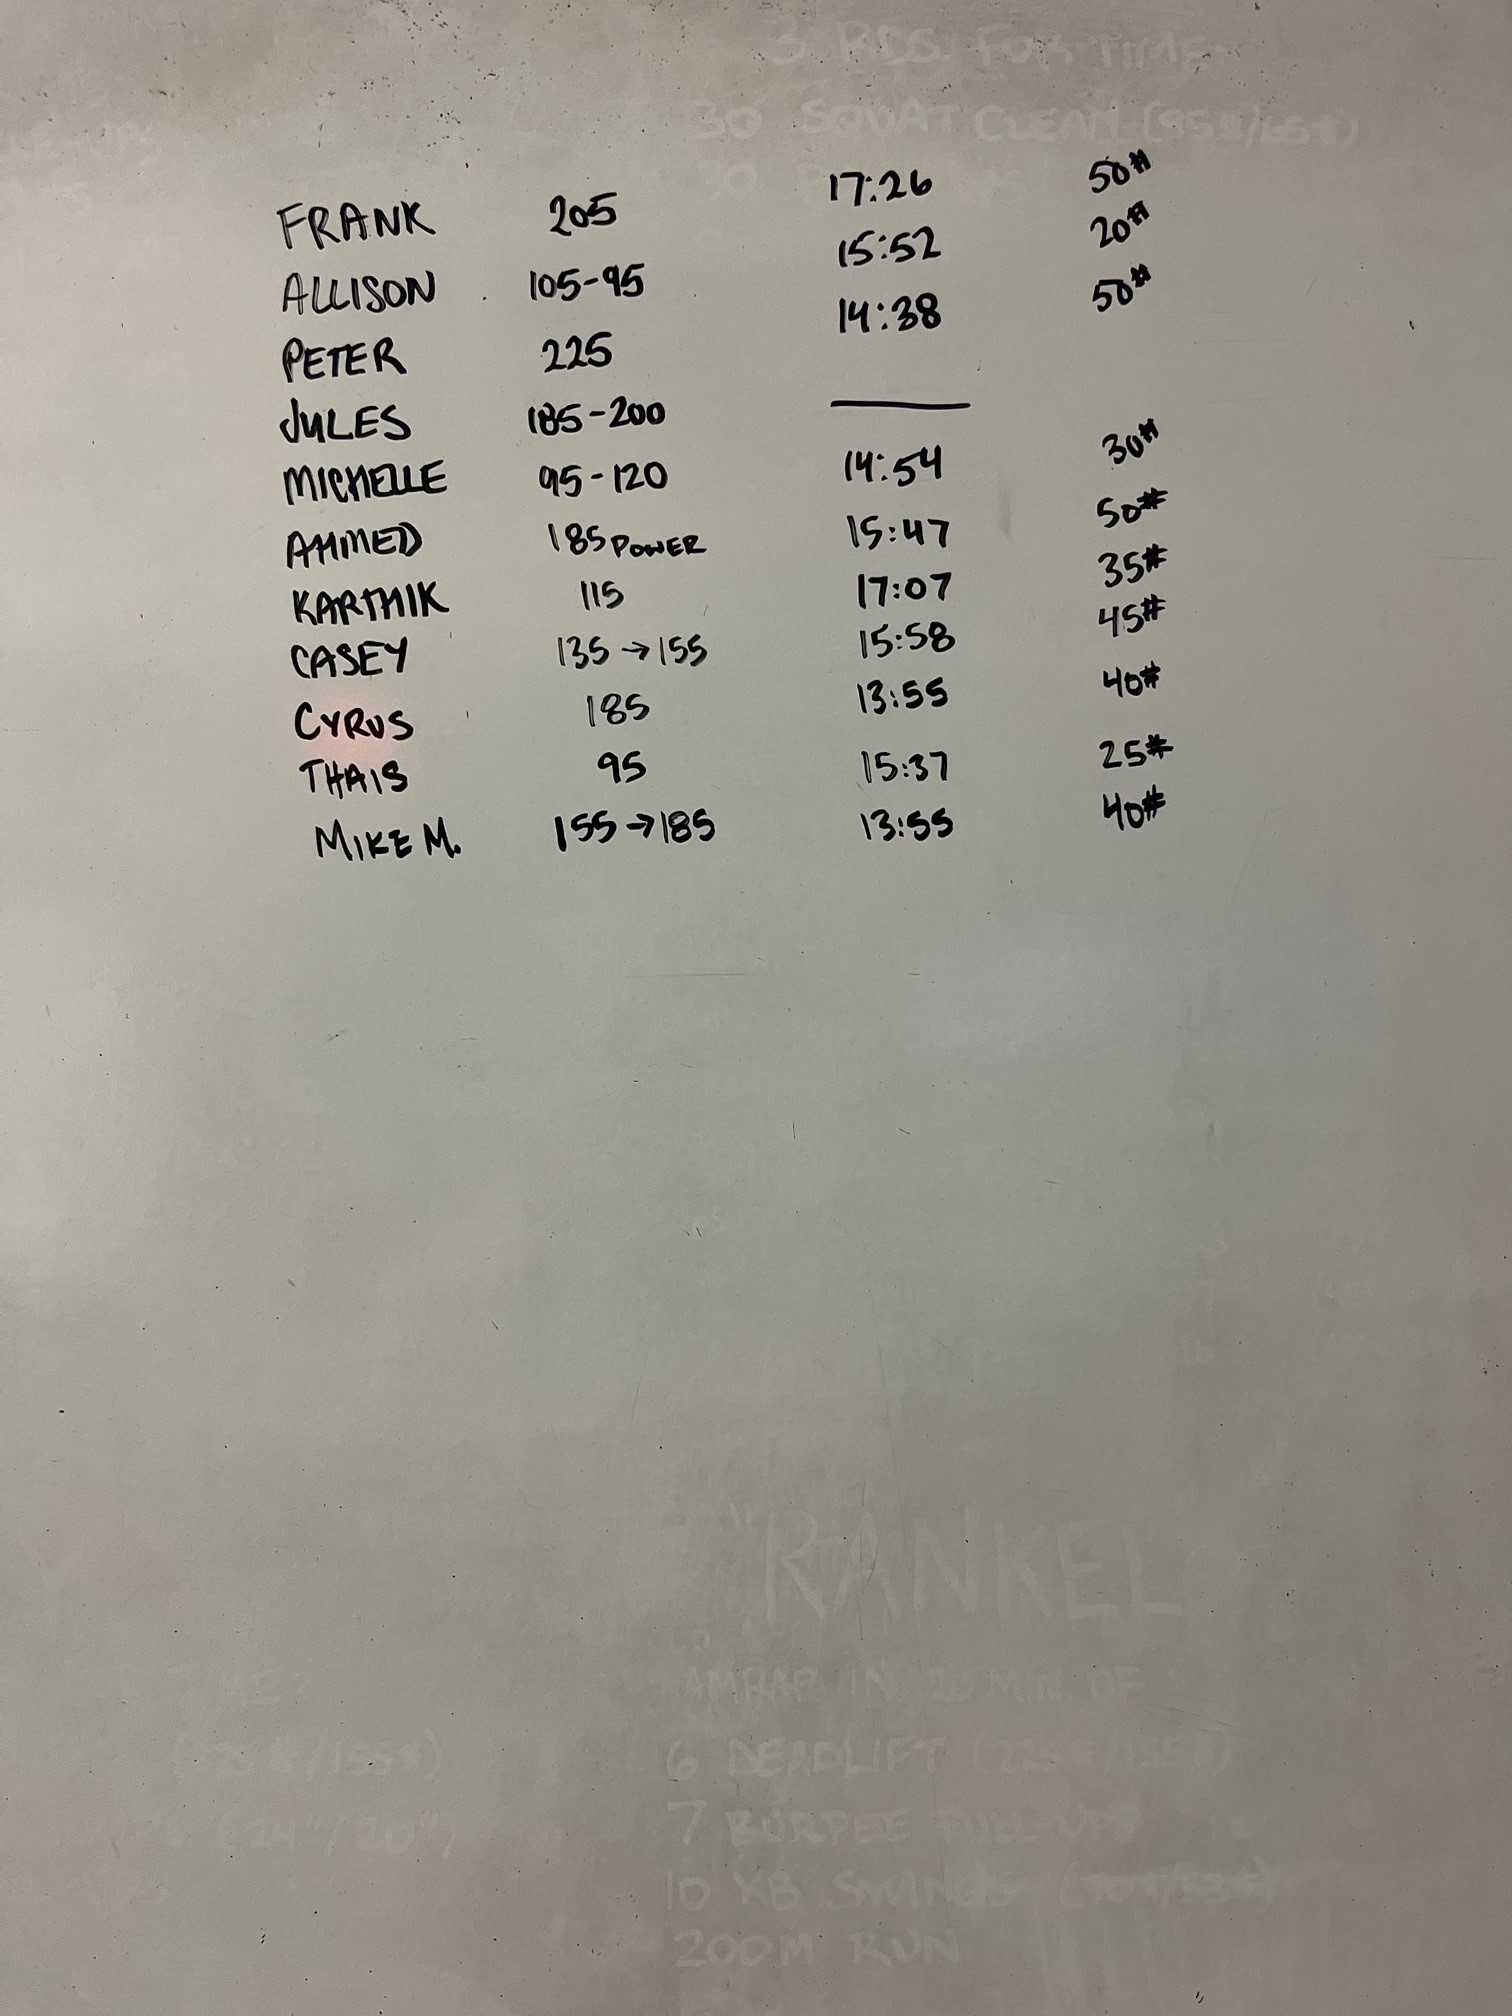 3 RDS. FOR TIME:
30 SQUAT CLEAN (95#/65#)
30
FRANK 205 17:26 50#
ALLISON 105-95 15:52 20#
PETER 225 14:38 50#
JULES 185-200 —
MICHELLE 95-120 14:54 30#
AHMED 185 POWER 15:47 50#
KARTHIK 115 17:07 35#
CASEY 135→155 15:58 45#
CYRUS 185 13:55 40#
THAIS 95 15:37 25#
MIKE M. 155→185 13:55 40#
"RANKEL
AMRAP IN 20 MIN. OF:
6 DEADLIFT (225#/155#)
(24"/20") 7 BURPEE PULL-UPS
10 KB SWINGS
200M RUN